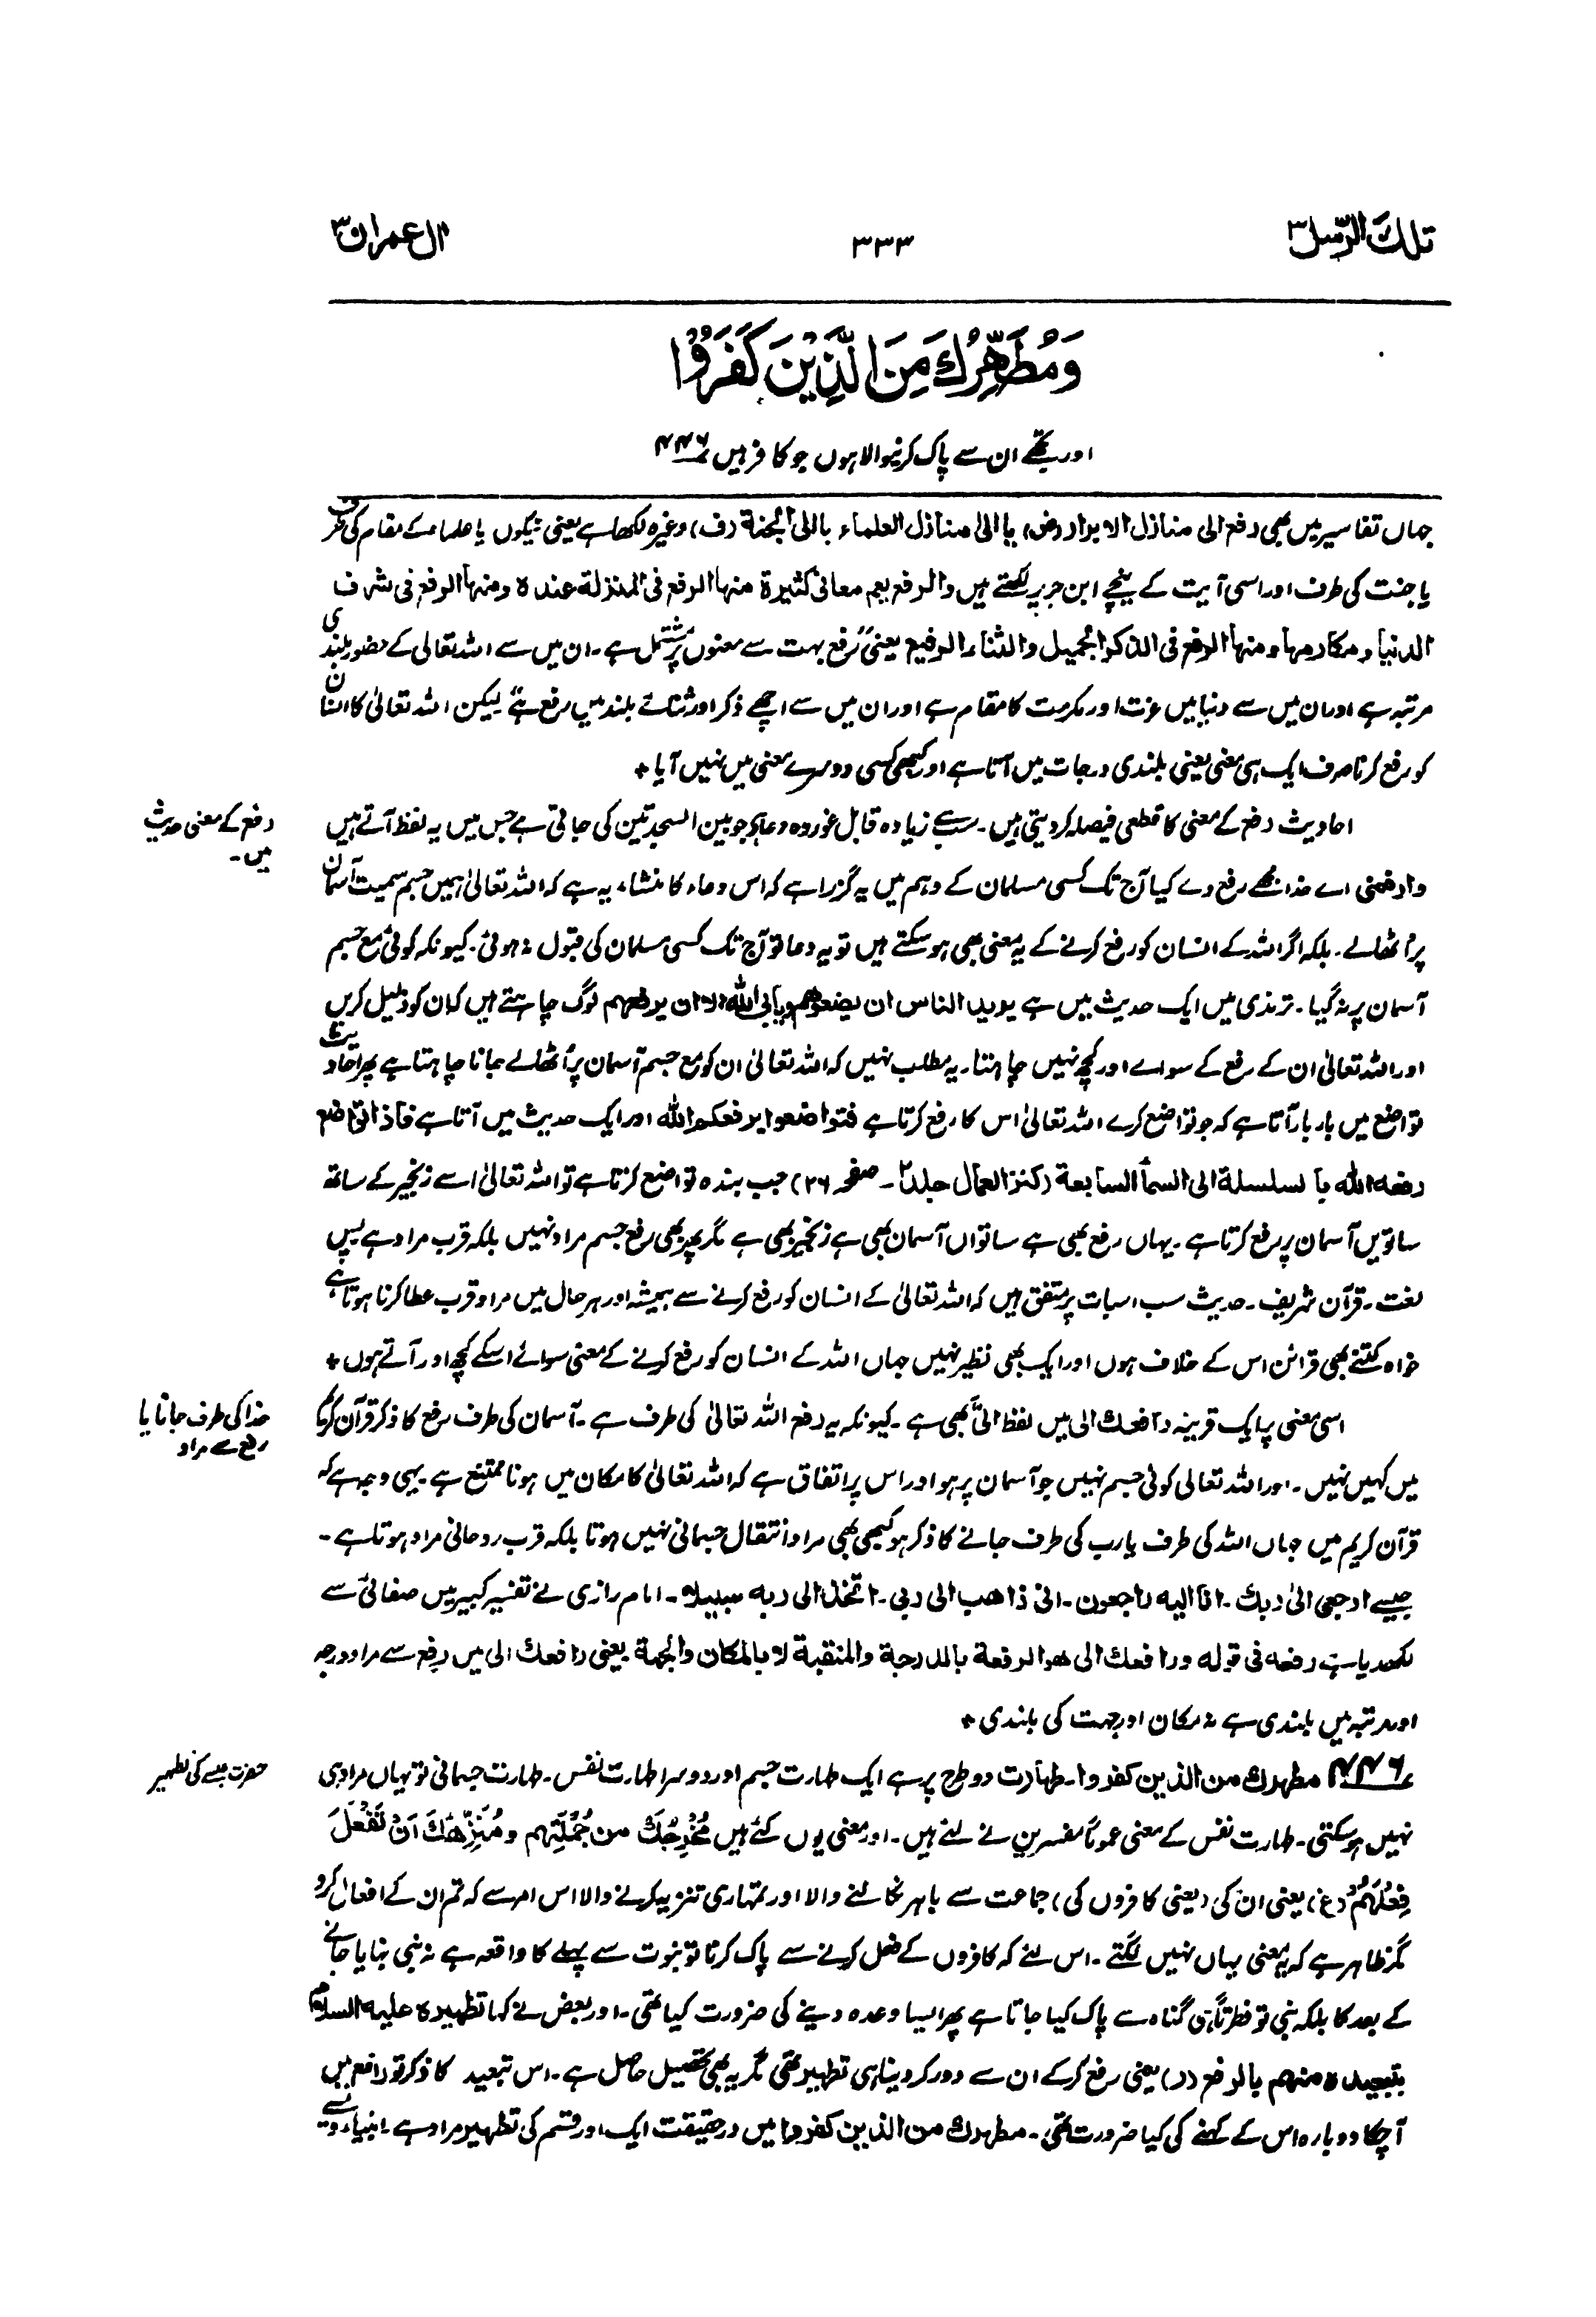 تلك الرسل ۳
۳۳۳
اٰل عمران ۳
وَمُطَهِّرُكَ مِنَ الَّذِيْنَ كَفَرُوْا
اور تجھے ان سے پاک کرنیوالا ہوں جو کافر ہیں ۴۴۶
جہاں تفاسیر میں بھی رفع الی منازل الابرار (ض) یا الیٰ منازل العلماء یا الی الجنة (ف) وغیرہ لکھا ہے یعنی نیکوں یا علماء کے مقام کی طرف
یا جنت کی طرف اور اسی آیت کے نیچے ابن جریر لکھتے ہیں والرفع یعم معانی کثیرة منها الرفع فی المنزلة عنده ومنها الرفع فی شرف
الدنیا ومکارمها ومنها الرفع فی الذکر الجمیل والثناء الرفیع یعنی "رفع بہت سے معنوں پر مشتمل ہے۔ ان میں سے اللہ تعالیٰ کے حضور بلندی
مرتبہ ہے اور ان میں سے دنیا میں عزت اور مکرمت کا مقام ہے اور ان میں سے اچھے ذکر اور ثنائے بلند میں رفع ہے" لیکن اللہ تعالیٰ کا انسان
کو رفع کرنا صرف ایک ہی معنی یعنی بلندی درجات میں آتا ہے اور کبھی کسی دوسرے معنی میں نہیں آیا +
رفع کے معنی حدیث
میں۔
احادیث رفع کے معنی کا قطعی فیصلہ کر دیتی ہیں۔ سب سے زیادہ قابل غور وہ دعا ہے جو بین السجدتین کی جاتی ہے جس میں یہ لفظ آتے ہیں
وارفعنی اے خدا مجھے رفع دے کیا آج تک کسی مسلمان کے وہم میں یہ گزرا ہے کہ اس دعاء کا منشاء یہ ہے کہ اللہ تعالیٰ ہمیں جسم سمیت آسمان
پر اُٹھالے۔ بلکہ اگر اللہ کے انسان کو رفع کرنے کے یہ معنی بھی ہو سکتے ہیں تو یہ دعا تو آج تک کسی مسلمان کی قبول نہ ہوئی۔ کیونکہ کوئی مع جسم
آسمان پر نہ گیا۔ ترمذی میں ایک حدیث میں ہے یرید الناس ان یضعوهم ویابی الله الا ان یرفعهم لوگ چاہتے ہیں کہ ان کو ذلیل کریں
اور اللہ تعالیٰ ان کے رفع کے سوائے اور کچھ نہیں چاہتا۔ یہ مطلب نہیں کہ اللہ تعالیٰ ان کو مع جسم آسمان پر اُٹھالے جانا چاہتا ہے پھر احادیث
تواضع میں بار بار آتا ہے کہ جو تواضع کرے اللہ تعالیٰ اس کا رفع کرتا ہے فتواضعوا یرفعکم الله اور ایک حدیث میں آتا ہے فاذا تواضع
رفعه الله بالسلسلة الی السماء السابعة (کنز العمال جلد ۲۔ صفحہ ۲۶) جب بندہ تواضع کرتا ہے تو اللہ تعالیٰ اسے زنجیر کے ساتھ
ساتویں آسمان پر رفع کرتا ہے۔ یہاں رفع بھی ہے ساتواں آسمان بھی ہے زنجیر بھی ہے مگر پھر بھی رفع جسم مراد نہیں بلکہ قرب مراد ہے پس
لغت۔ قرآن شریف۔ حدیث سب اسبات پر متفق ہیں کہ اللہ تعالیٰ کے انسان کو رفع کرنے سے ہمیشہ اور ہر حال میں مراد قرب عطا کرنا ہوتا ہے
خواہ کتنے بھی قرائن اس کے خلاف ہوں اور ایک بھی نظیر نہیں جہاں اللہ کے انسان کو رفع کرنے کے معنی سوائے اسکے کچھ اور آتے ہوں +
خدا کی طرف جانا یا
رفع سے مراد
اسی معنی پر ایک قرینہ رافعك الی میں لفظ الیَّ بھی ہے۔ کیونکہ یہ رفع اللہ تعالیٰ کی طرف ہے۔ آسمان کی طرف رفع کا ذکر قرآن کریم
میں کہیں نہیں۔ اور اللہ تعالیٰ کوئی جسم نہیں جو آسمان پر ہو اور اس پر اتفاق ہے کہ اللہ تعالیٰ کا مکان میں ہونا ممتنع ہے یہی وجہ ہے کہ
قرآن کریم میں جہاں اللہ کی طرف یا رب کی طرف جانے کا ذکر ہو کبھی بھی مراد انتقال جسمانی نہیں ہوتا بلکہ قرب روحانی مراد ہوتا ہے۔
جیسے ارجعی الیٰ ربك۔ انا الیه راجعون۔ انی ذاهب الی ربی۔ اتخذ الی ربه سبیلا۔ امام رازی نے تفسیر کبیر میں صفائی سے
لکھدیا ہے رفعه فی قوله ورافعك الی هو الرفعة بالدرجة والمنقبة لا بالمکان والجهة یعنی رافعك الی میں رفع سے مراد درجہ
اور مرتبہ میں بلندی ہے نہ مکان اور جہت کی بلندی +
حضرت عیسےٰ کی تطہیر
۴۴۶ مطهرك من الذین کفروا۔ طہارت دو طرح پر ہے ایک طہارت جسم اور دوسرا طہارت نفس۔ طہارت جسمانی تو یہاں مراد ہی
نہیں ہو سکتی۔ طہارت نفس کے معنی عموماً مفسرین نے لئے ہیں۔ اور معنی یوں کئے ہیں مُخْرِجُكَ من جُمْلَتِهم ومُنَزِّهُكَ اَنْ تَفْعَلَ
فِعْلَهُمْ (غ) یعنی ان کی (یعنی کافروں کی) جماعت سے باہر نکالنے والا اور تمہاری تنزیہ کرنے والا اس امر سے کہ تم ان کے افعال کرو
مگر ظاہر ہے کہ یہ معنی یہاں نہیں لگتے۔ اس لئے کہ کافروں کے فعل کرنے سے پاک کرنا تو نبوت سے پہلے کا واقعہ ہے نہ نبی بنایا جانے
کے بعد کا بلکہ نبی تو فطرتاً ہی گناہ سے پاک کیا جاتا ہے پھر ایسا وعدہ دینے کی ضرورت کیا تھی۔ اور بعض نے کہا تطهیره علیه السلام
بتبعیده منهم بالرفع (ر) یعنی رفع کرکے ان سے دور کر دینا ہی تطہیر تھی مگر یہ بھی تحصیل حاصل ہے۔ اس تبعید کا ذکر تو رافع میں
آچکا دوبارہ اس کے کہنے کی کیا ضرورت تھی۔ مطهرك من الذین کفروا میں درحقیقت ایک اور قسم کی تطہیر مراد ہے۔ انبیاء